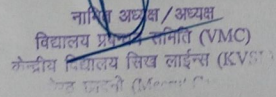 नामित अध्यक्ष / अध्यक्ष
विद्यालय प्रबन्धन समिति (VMC)
केन्द्रीय विद्यालय सिख लाईन्स (KVS)